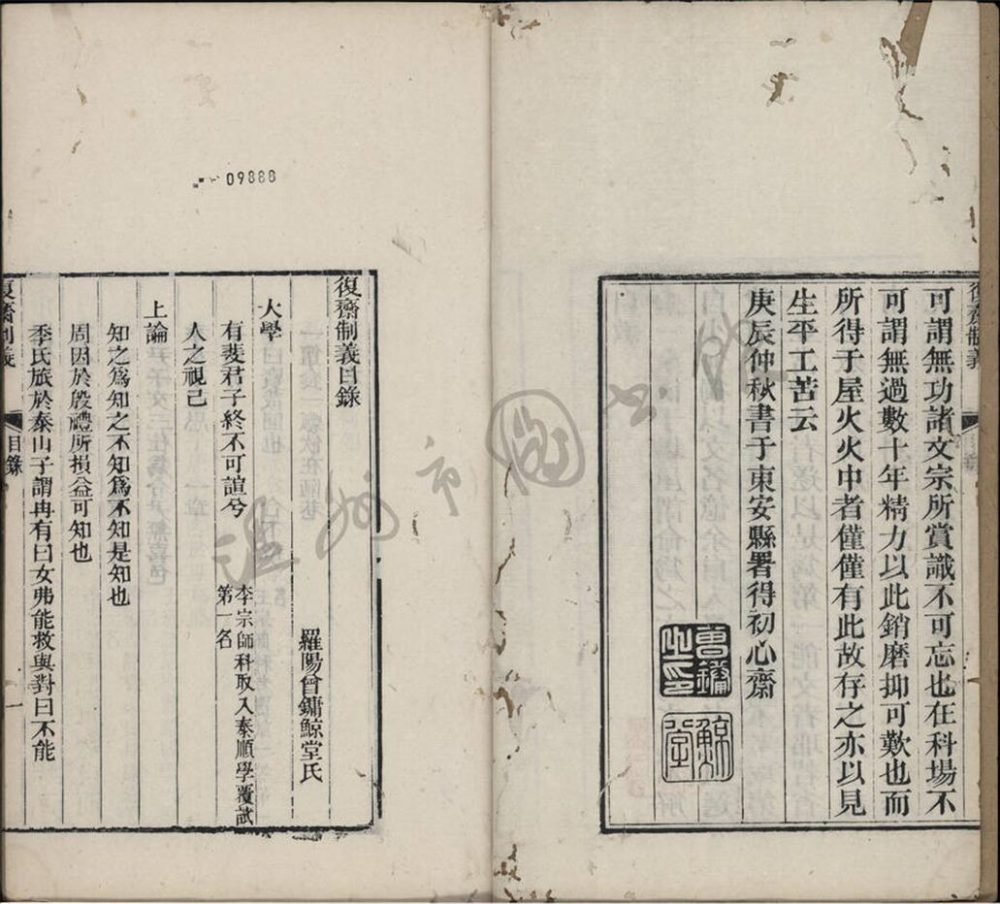 復齋制義
可謂無功諸文宗所賞識不可忘也在科場不
可謂無過數十年精力以此銷磨抑可歎也而
所得于屋火火中者僅僅有此故存之亦以見
生平工苦云
庚辰仲秋書于東安縣署得初心齋
曾鏞之印
鯨堂
溫州市圖書館
09888
復齋制義目錄
羅陽曾鏞鯨堂氏
大學
有斐君子終不可諠兮
李宗師科取入泰順學覆試
第一名
人之視己
上論
知之爲知之不知爲不知是知也
周因於殷禮所損益可知也
季氏旅於泰山子謂冉有曰女弗能救與對曰不能
復齋制義
目錄
一